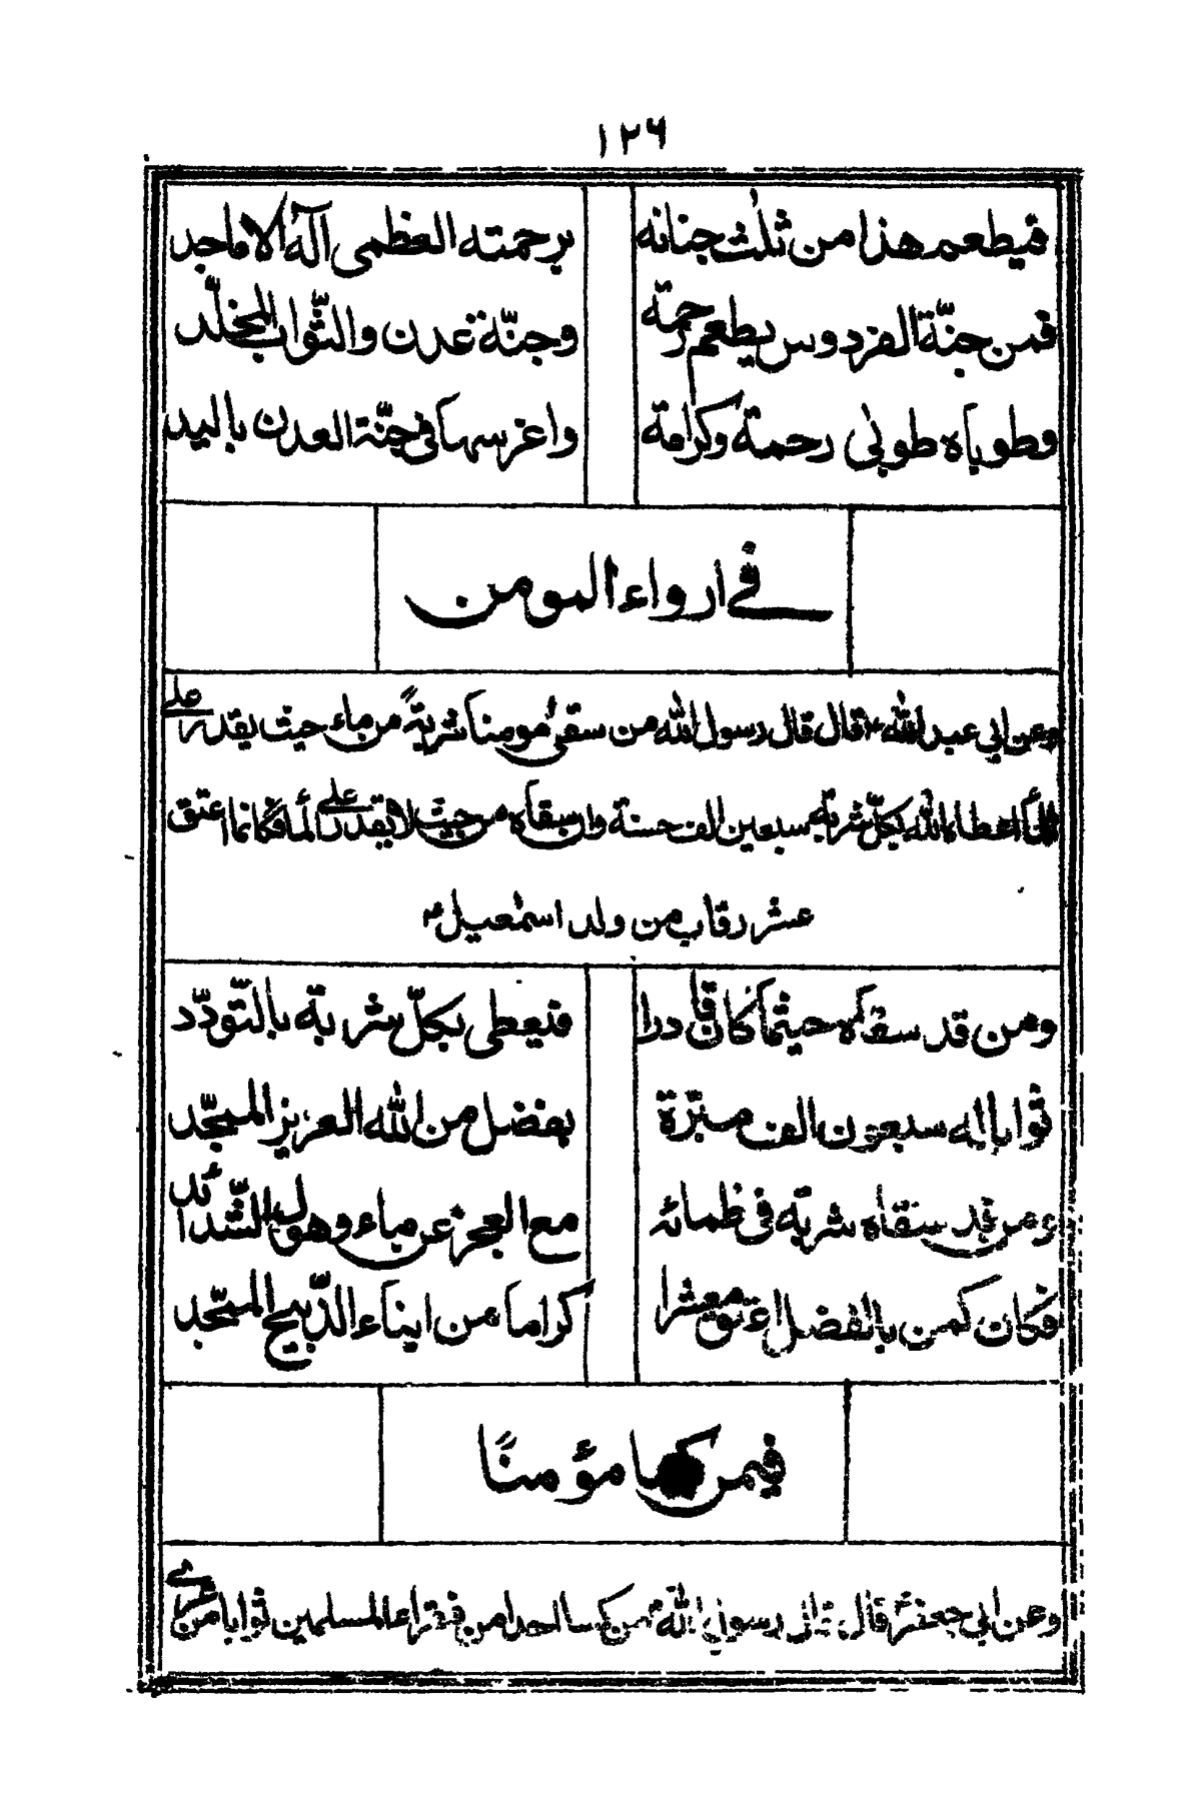 ١٢٦
فيطعم هذا من ثلٰث جنانه برحمته العظمى آله الاماجد
فمن جنّة الفردوس يطعم رحمة وجنّة عدن والثّواب المخلّد
وطوباه طوبٰى رحمة وكرامة واغرسها فى جنّة العدن باليد
في ارواء المومن
وعن ابي عبد الله ع قال قال رسول الله من سقى مؤمنا شربةً من ماء حيث يقدر على
اعطاه الله بكلّ شربة سبعين الف حسنة وان سقاه من حيث لا يقدر على الماء فكانما اعتق
عشر رقاب من ولد اسمٰعيل ع
ومن قد سقٰى ماء حيثما كان قادرا فيعطى بكلّ شربة بالتّودّد
ثوابا له سبعون الف مبرّة بفضل من الله العزيز الممجّد
ومن قد سقاه شربة فى ظمائه مع العجز عن ماء وهول الشّدائد
فكان كمن بالفضل اعتق معشرا كراما من ابناء الذّبيح الممجّد
فيمن كسا مؤمنًا
وعن ابي جعفر ع قال قال رسول الله من كسا احدا من فقراء المسلمين ثوبا من عرى